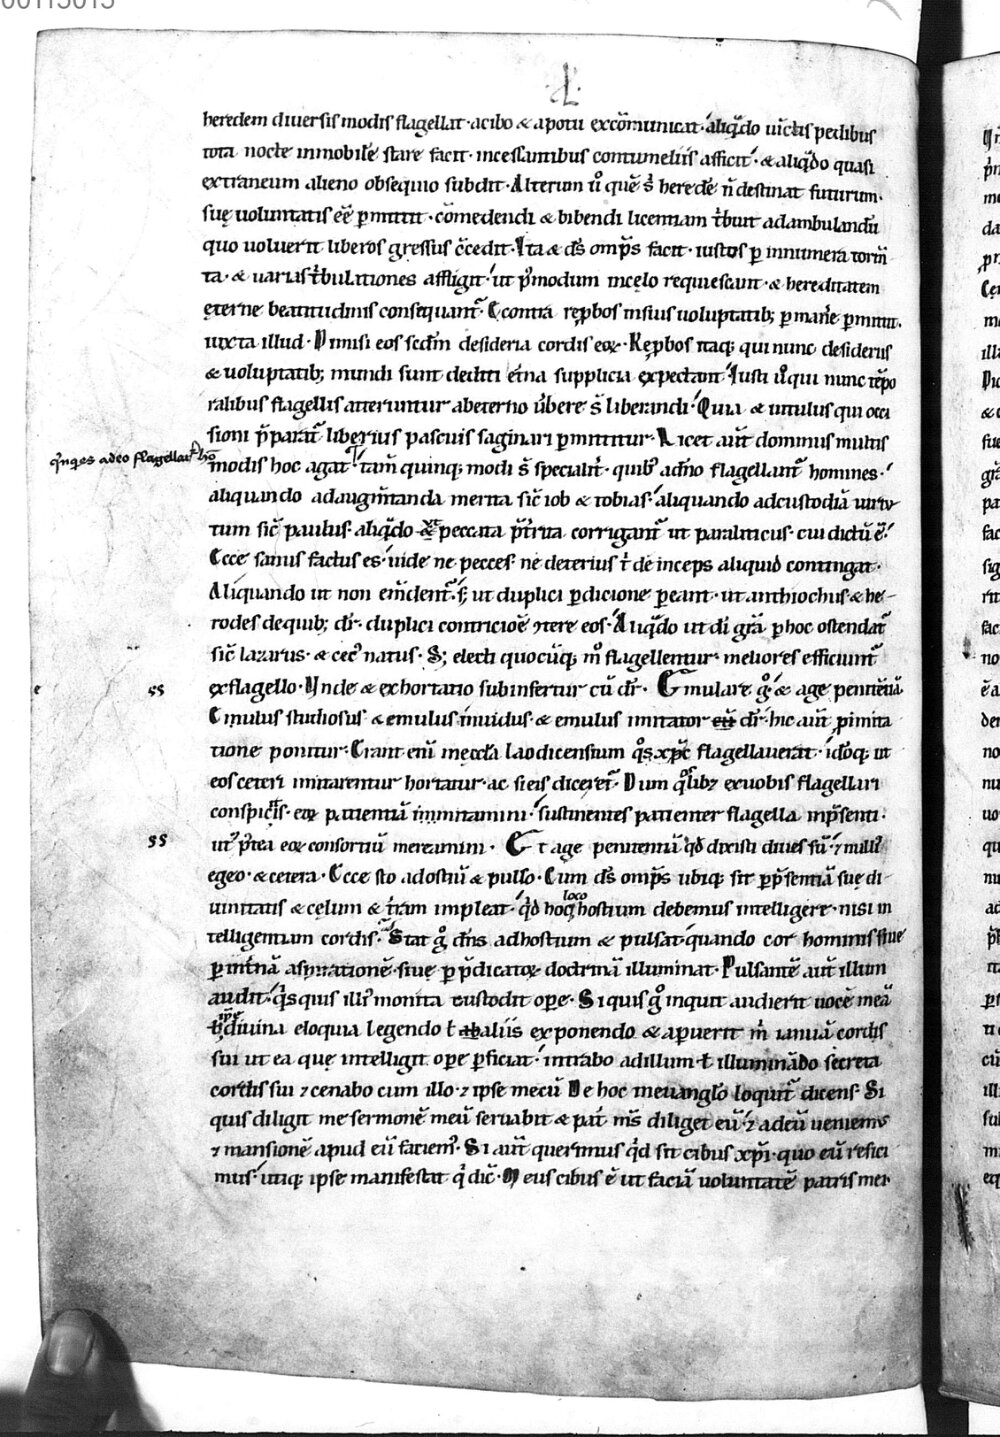 .L.
heredem diuersis modis flagellat· a cibo & a potu excōmunicat· aliq̄do uīctis pedibus
tota nocte inmobilē stare facit· incessantibus contumeliis afficit· & aliq̄do quasi
extraneum alieno obsequio subdit· Alterum ū quē s̄ heredē n̄ destinat futurum·
suę uoluntatis eē p̄mittit· cōmedendi & bibendi licentiam t̄buit ad ambulandū
quo uoluerit liberos gressus c̄cedit· Ita & ds̄ omp̄s facit· iustos ꝑ innumera torm̄
ta· & uarias t̄bulationes affligit· ut p̄modum in cęlo requiescant· & hereditatem
ęterne beatitudinis consequant̄· E contra rep̄bos in siuis uoluptatib; ꝑmanē ꝑmittit·
iuxta illud· Dimisi eos scd̄m desideria cordis eoꝝ· Rep̄bos itaq; qui nunc desideriis
& uoluptatib; mundi sunt dediti et̄na supplicia exp̄ectant· Iusti ū qui nunc tēpo
ralibus flagellis atteruntur ab eterno ūbere s̄ liberandi· Quia & uitulus qui occi
sioni p̄parat̄ liberius pascuis saginari ꝑmittitur· Licet aūt dominus multis
q̄nq;es a deo flagellant̄ ho
modis hoc agat· tam̄ quinq; modi s̄ specialit̄· quib; a dn̄o flagellant̄ homines·
aliquando ad augm̄tanda merita sic̄ iob & tobias· aliquando ad custodiā uirtu
tum sic̄ paulus· aliq̄do peccata p̄t̄ita corrigant̄ ut paraliticus· cui dictū ē·
Ecce sanus factus es· uide ne pecces· ne deterius t̄ deinceps aliquid contingat·
Aliquando ut non em̄dent̄· s; ut duplici ꝑdicione ꝑeant· ut anthiochus & he-
rodes de quib; dr̄· duplici contricioē 9tere eos· Aliq̄do ut dī gr̄a ꝑ hoc ostendat̄
sic̄ lazarus· & cec' natus· S; electi quocūq; m̄ flagellentur· meliores efficiunt̄
ex flagello· Vnde & exhortatio subinfertur cū dr̄· Emulare g̊ & age penitētiā
ss
Emulus studiosus· & emulus inuidus· & emulus imitator dr̄· hic aūt ꝓ imita
tione ponitur· Erant enī in ęccl̄a laodicensium q̊s xp̄c flagellauerat· idōq; ut
eos ceteri imitarentur hortatur· ac si eis diceret̄· Dum q̊slib; ex uobis flagellari
conspicitis· eoꝝ patientiā immitamini· sustinentes patienter flagella in p̄senti·
ss
ut p̄tea eoꝝ consortiū mereamini· Et age penitentiā q̄d dixisti diues sū· 7 null'
egeo· & cetera· Ecce sto ad ostiū & pulso· Cum ds̄ omp̄s ubiq; sit ꝑ p̄sentiā suę di-
uinitatis & cęlum & t̄ram impleat· q̄d hoc loco hostium debemus intelligere· nisi in
telligentiam cordis· Stat g̊ dn̄s ad hostium & pulsat· quando cor hominis siue
ꝑ int̄nā aspirationē· siuę ꝑ p̄dicatoꝝ doctrinā illuminat· Pulsantē aūt illum
audit· q̄sq̄uis illi' monita custodit oꝑe· Si quis g̊ inquit audierit uocē meā
ipse
diuina eloquia legendo ł ab aliis exponendo & aꝑuerit m̄ ianuā cordis
sui ut ea quę intelligit oꝑe ꝑficiat· intrabo ad illum· ł illuminādo secreta
cordis sui 7 cenabo cum illo· 7 ipse mecū De hoc in euanglo loquit̄ dicens· Si
quis diligit me sermonē meū seruabit & pat̄ ms̄ diliget eū· 7 ad eū ueniem'
7 mansionē apud eū faciem'· Si aūt querimus q̄d sit cibus xp̄i· quo eū refici
mus· utiq; ipse manifestat q̄ dic̄· Meus cibus ē ut faciā uoluntatē patris mei·